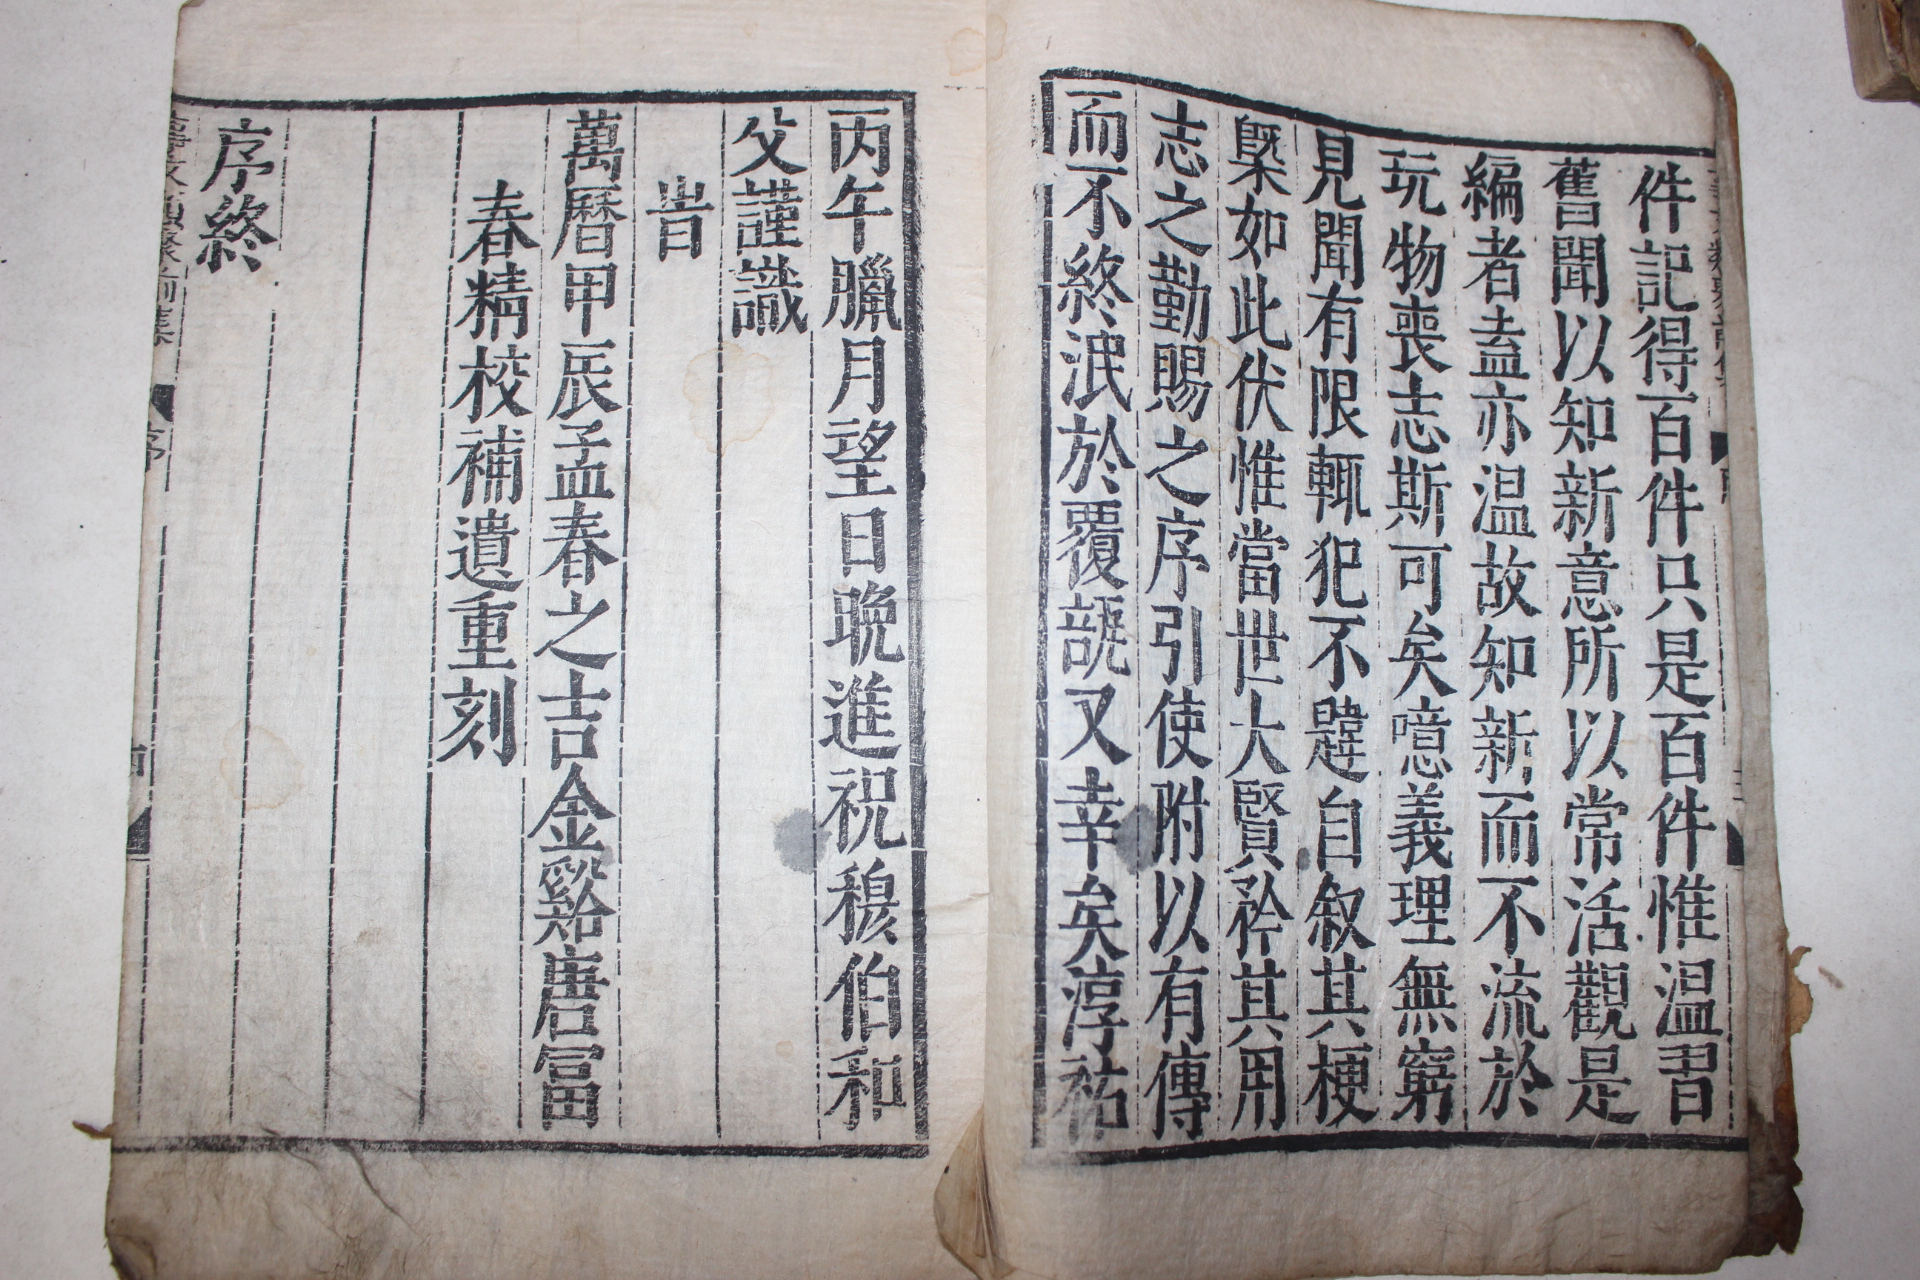 件記得百件只是百件惟温習
舊聞以知新意所以常活觀是
編者盍亦温故知新而不流於
玩物喪志斯可矣噫義理無窮
見聞有限輒犯不韙自叙其梗
槩如此伏惟當世大賢矜其用
志之勤賜之序引使附以有傳
而不終泯於覆瓿又幸矣淳祐
丙午臘月望日晚進祝穆伯和
父謹識
旹
萬曆甲辰孟春之吉金谿唐冨
春精校補遺重刻
序終
事文類聚前集
序
四